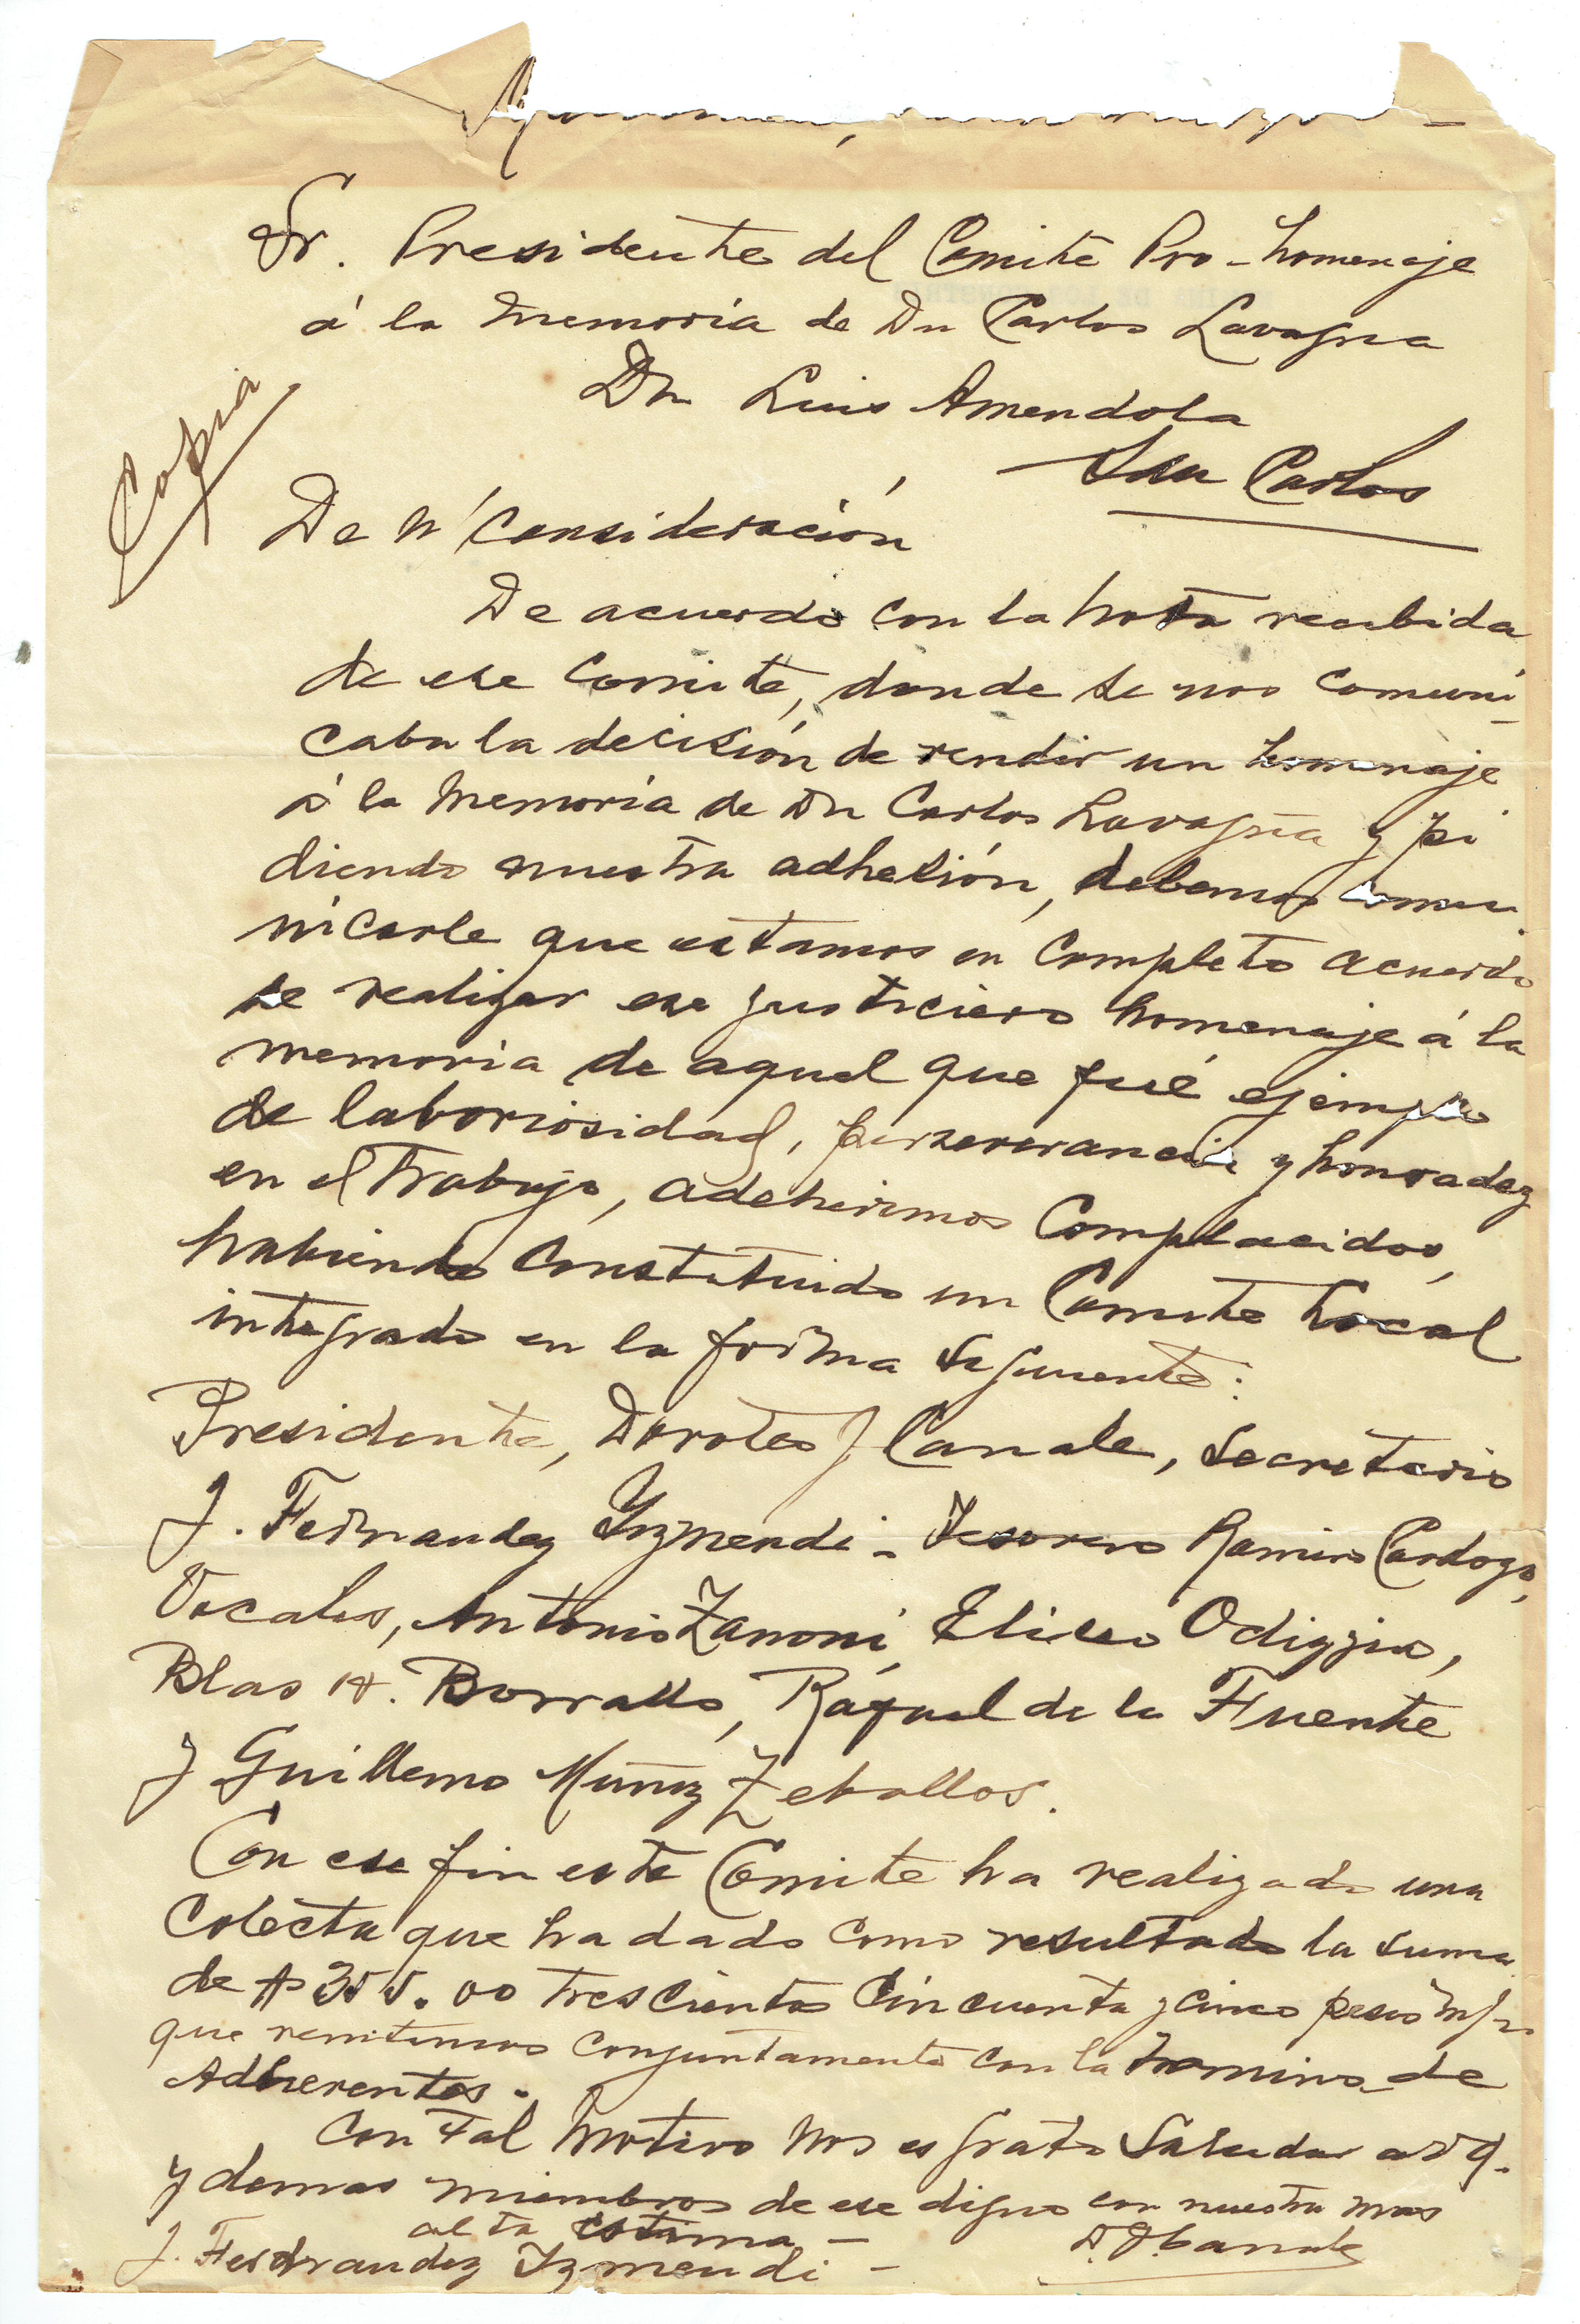 Sr. Presidente del Comité Pro-homenaje
á la memoria de Dn Carlos Lavagna
Dn Luis Amendola
San Carlos
Copia
De n/consideración
De acuerdo con la nota recibida
de ese Comité, donde se nos comuni
caba la decisión de rendir un homenaje
á la memoria de Dn Carlos Lavagna y pi
diendo nuestra adhesión, debemos comu
nicarle que estamos en completo acuerdo
de realizar ese justiciero homenaje á la
memoria de aquel que fué ejemplo
de laboriosidad, perseverancia y honradez
en el trabajo, adeherimos Complacidos,
habiendo constituido un Comité Local
integrado en la forma siguiente:
Presidente, Doroteo J Canale, Secretario
J. Fernandez Yzmendi - Tesorero Ramiro Cardozo,
Vocales, Antonio Zanoni, Eliseo Odizzio,
Blas A. Borrallo, Rafael de la Fuente
y Guillermo Muñiz Zeballos.
Con ese fin este Comité ha realizado una
Colecta que ha dado como resultado la suma
de $ 355.00 trescientos cincuenta y cinco pesos m/n
que remitimos conjuntamente con la nomina de
Adherentes.
Con tal motivo nos es grato saludar a Vd.
y demas miembros de ese digno con nuestra mas
alta estima -
J. Fernandez Yzmendi - D. J. Canale